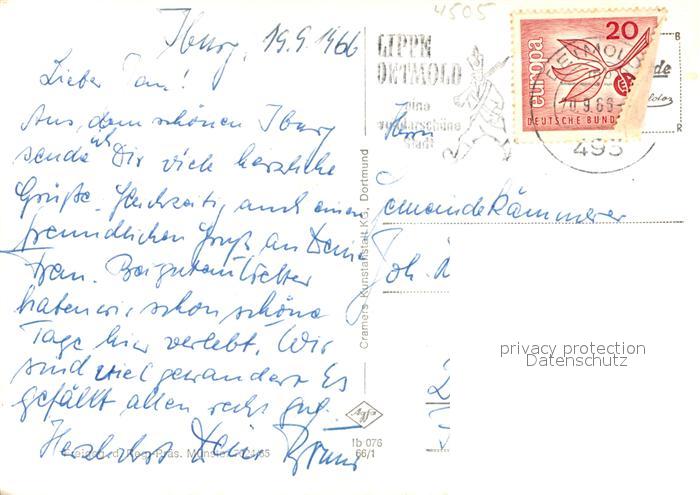 4505
Iburg, 19.9.1966
Lieber
Aus dem schönen Iburg
sende ich Dir viele herzliche
Grüße. Gleichzeitig auch einen
freundlichen Gruß an Deine
Frau. Bei gutem Wetter
haben wir schon schöne
Tage hier verlebt. Wir
sind viel gewandert. Es
gefällt allen recht gut.
Herzlichst Dein Bruno
LIPPE
DETMOLD
eine
wunderschöne
Stadt
europa
20
DEUTSCHE BUND
DETMOLD
9.66
493
Herrn
Gemeindekämmerer
Joh.
privacy protection
Datenschutz
Cramers Kunstanstalt KG, Dortmund
Agfa
Ib 076
66/1
Freigeg. d. Reg. Präs. Münster